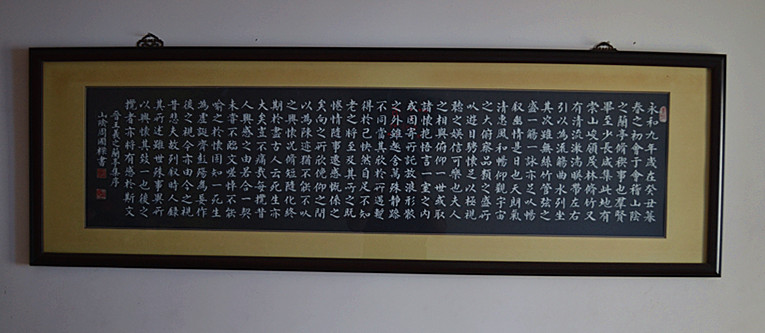 永和九年歲在癸丑暮
春之初會于會稽山陰
之蘭亭脩稧事也羣賢
畢至少長咸集此地有
崇山峻嶺茂林脩竹又
有清流激湍暎帶左右
引以為流觴曲水列坐
其次雖無絲竹管弦之
盛一觴一詠亦足以暢
叙幽情是日也天朗氣
清惠風和暢仰觀宇宙
之大俯察品類之盛所
以遊目騁懷足以極視
聽之娛信可樂也夫人
之相與俯仰一世或取
諸懷抱悟言一室之內
或因寄所託放浪形骸
之外雖趣舍萬殊靜躁
不同當其欣於所遇暫
得於己怏然自足不知
老之將至及其所之既
惓情隨事遷感慨係之
矣向之所欣俛仰之間
以為陳迹猶不能不以
之興懷況脩短隨化終
期於盡古人云死生亦
大矣豈不痛哉每攬昔
人興感之由若合一契
未嘗不臨文嗟悼不能
喻之於懷固知一死生
為虛誕齊彭殤為妄作
後之視今亦由今之視
昔悲夫故列叙時人錄
其所述雖世殊事異所
以興懷其致一也後之
攬者亦將有感於斯文
晉王羲之蘭亭集序
山陰周國書